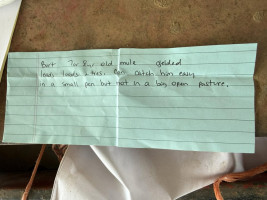 Bart 7 or 8 yr old mule gelded
loads, leads & ties. Can catch him easy
in a small pen but not in a big open pasture.